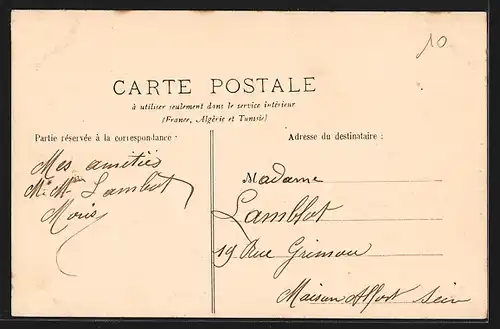 10
CARTE POSTALE
à utiliser seulement dans le service intérieur
(France, Algérie et Tunisie)
Partie réservée à la correspondance :
Adresse du destinataire :
Mes amitiés
Lambert
Madame
Lamblot
19 Rue Grimou
Maison Alfort Seine